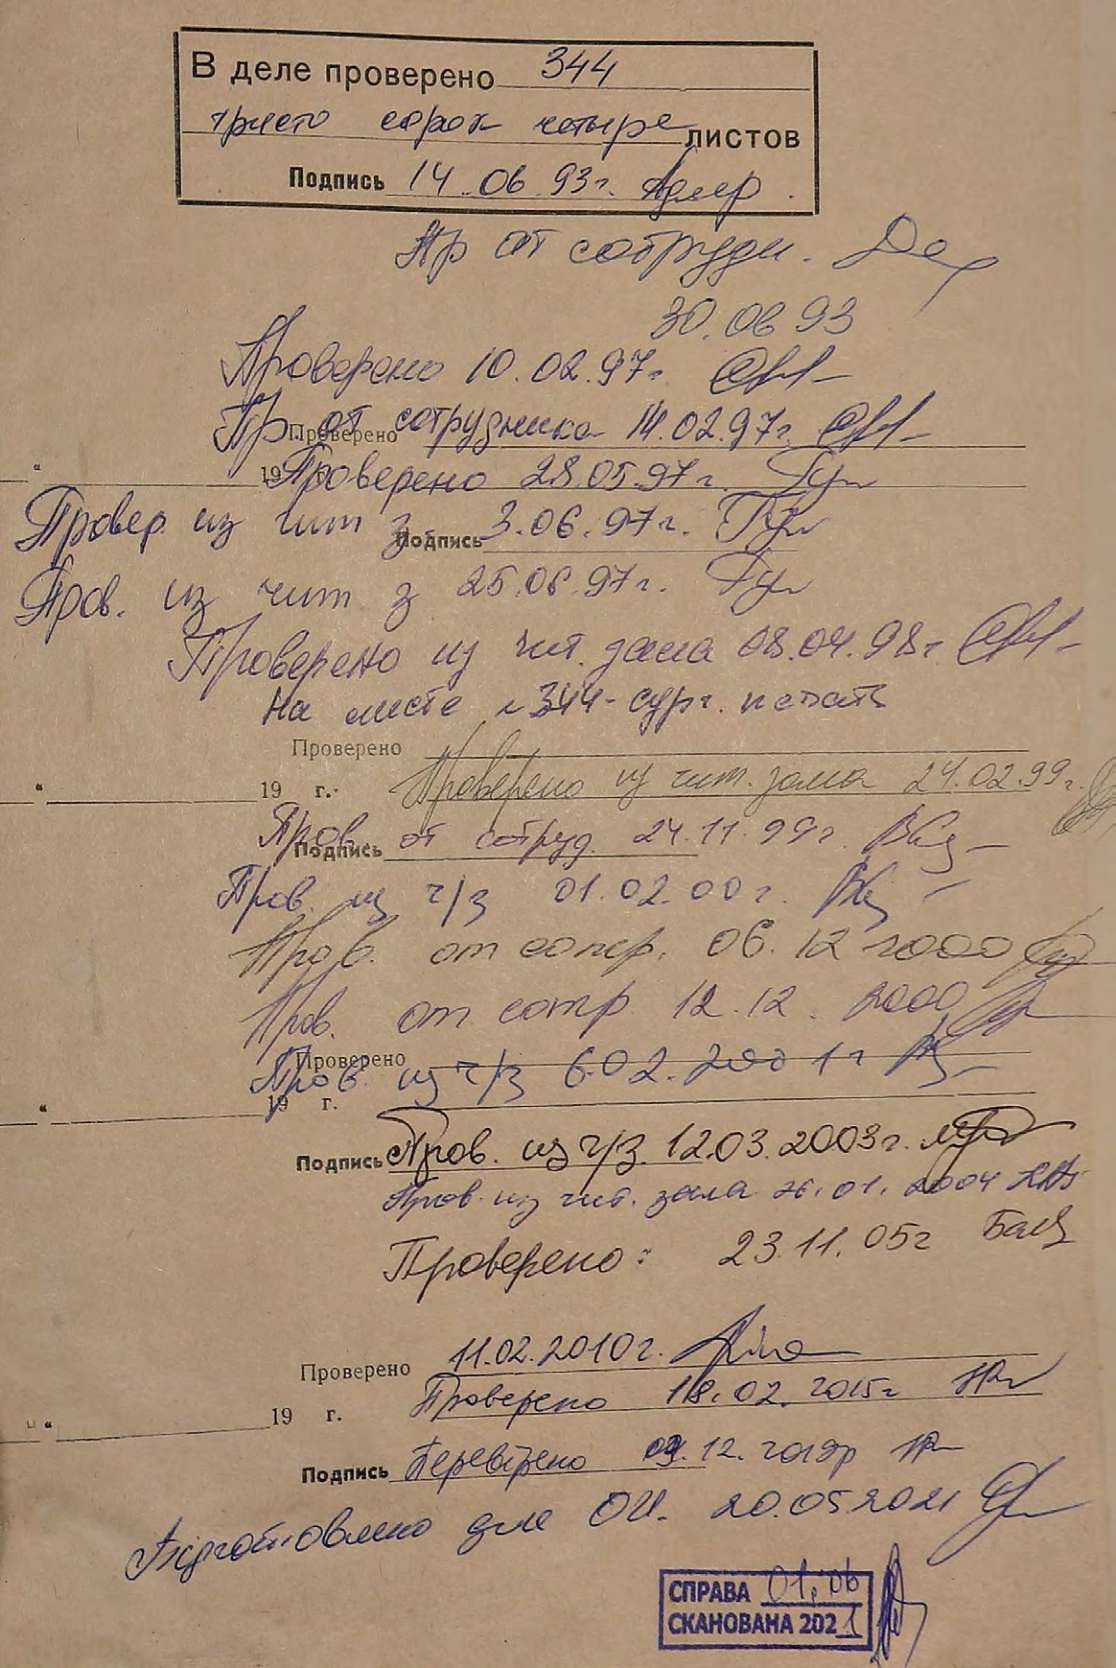 В деле проверено 344
тристо сорок четыре листов
Подпись 14.06.93г.
Пр от сотрудн.
30.06 93
Проверено 10.02.97г.
Пр. от сотрудника 14.02.97г.
Проверено
"
19
Проверено 28.05.97г.
Провер. из чит з 3.06.97г.
Подпись
Пров. из чит з 25.06.97г.
Проверено из чит. зала 08.04.98г
На листе № 344 - сург. печать
Проверено
" 19 г.
Проверено из чит. зала 24.02.99г.
Пров. от сотруд. 24.11.99г.
Подпись
Пров. из ч/з 01.02.00г.
Пров. от сотр. 06.12 2000
Пров. от сотр 12.12. 2000
Проверено
Пров. из ч/з 6.02.2001г
" 19 г.
Подпись Пров. из ч/з. 12.03.2003г.
Пров. из чит. зала 26.01.2004
Проверено: 23.11.05г
Проверено 11.02.2010г.
Проверено 18.02.2015г
" 19 г.
Подпись Перевірено 12.2019р
Підготовлено для ОЦ. 20.05.2021
СПРАВА 01.06
СКАНОВАНА 2021